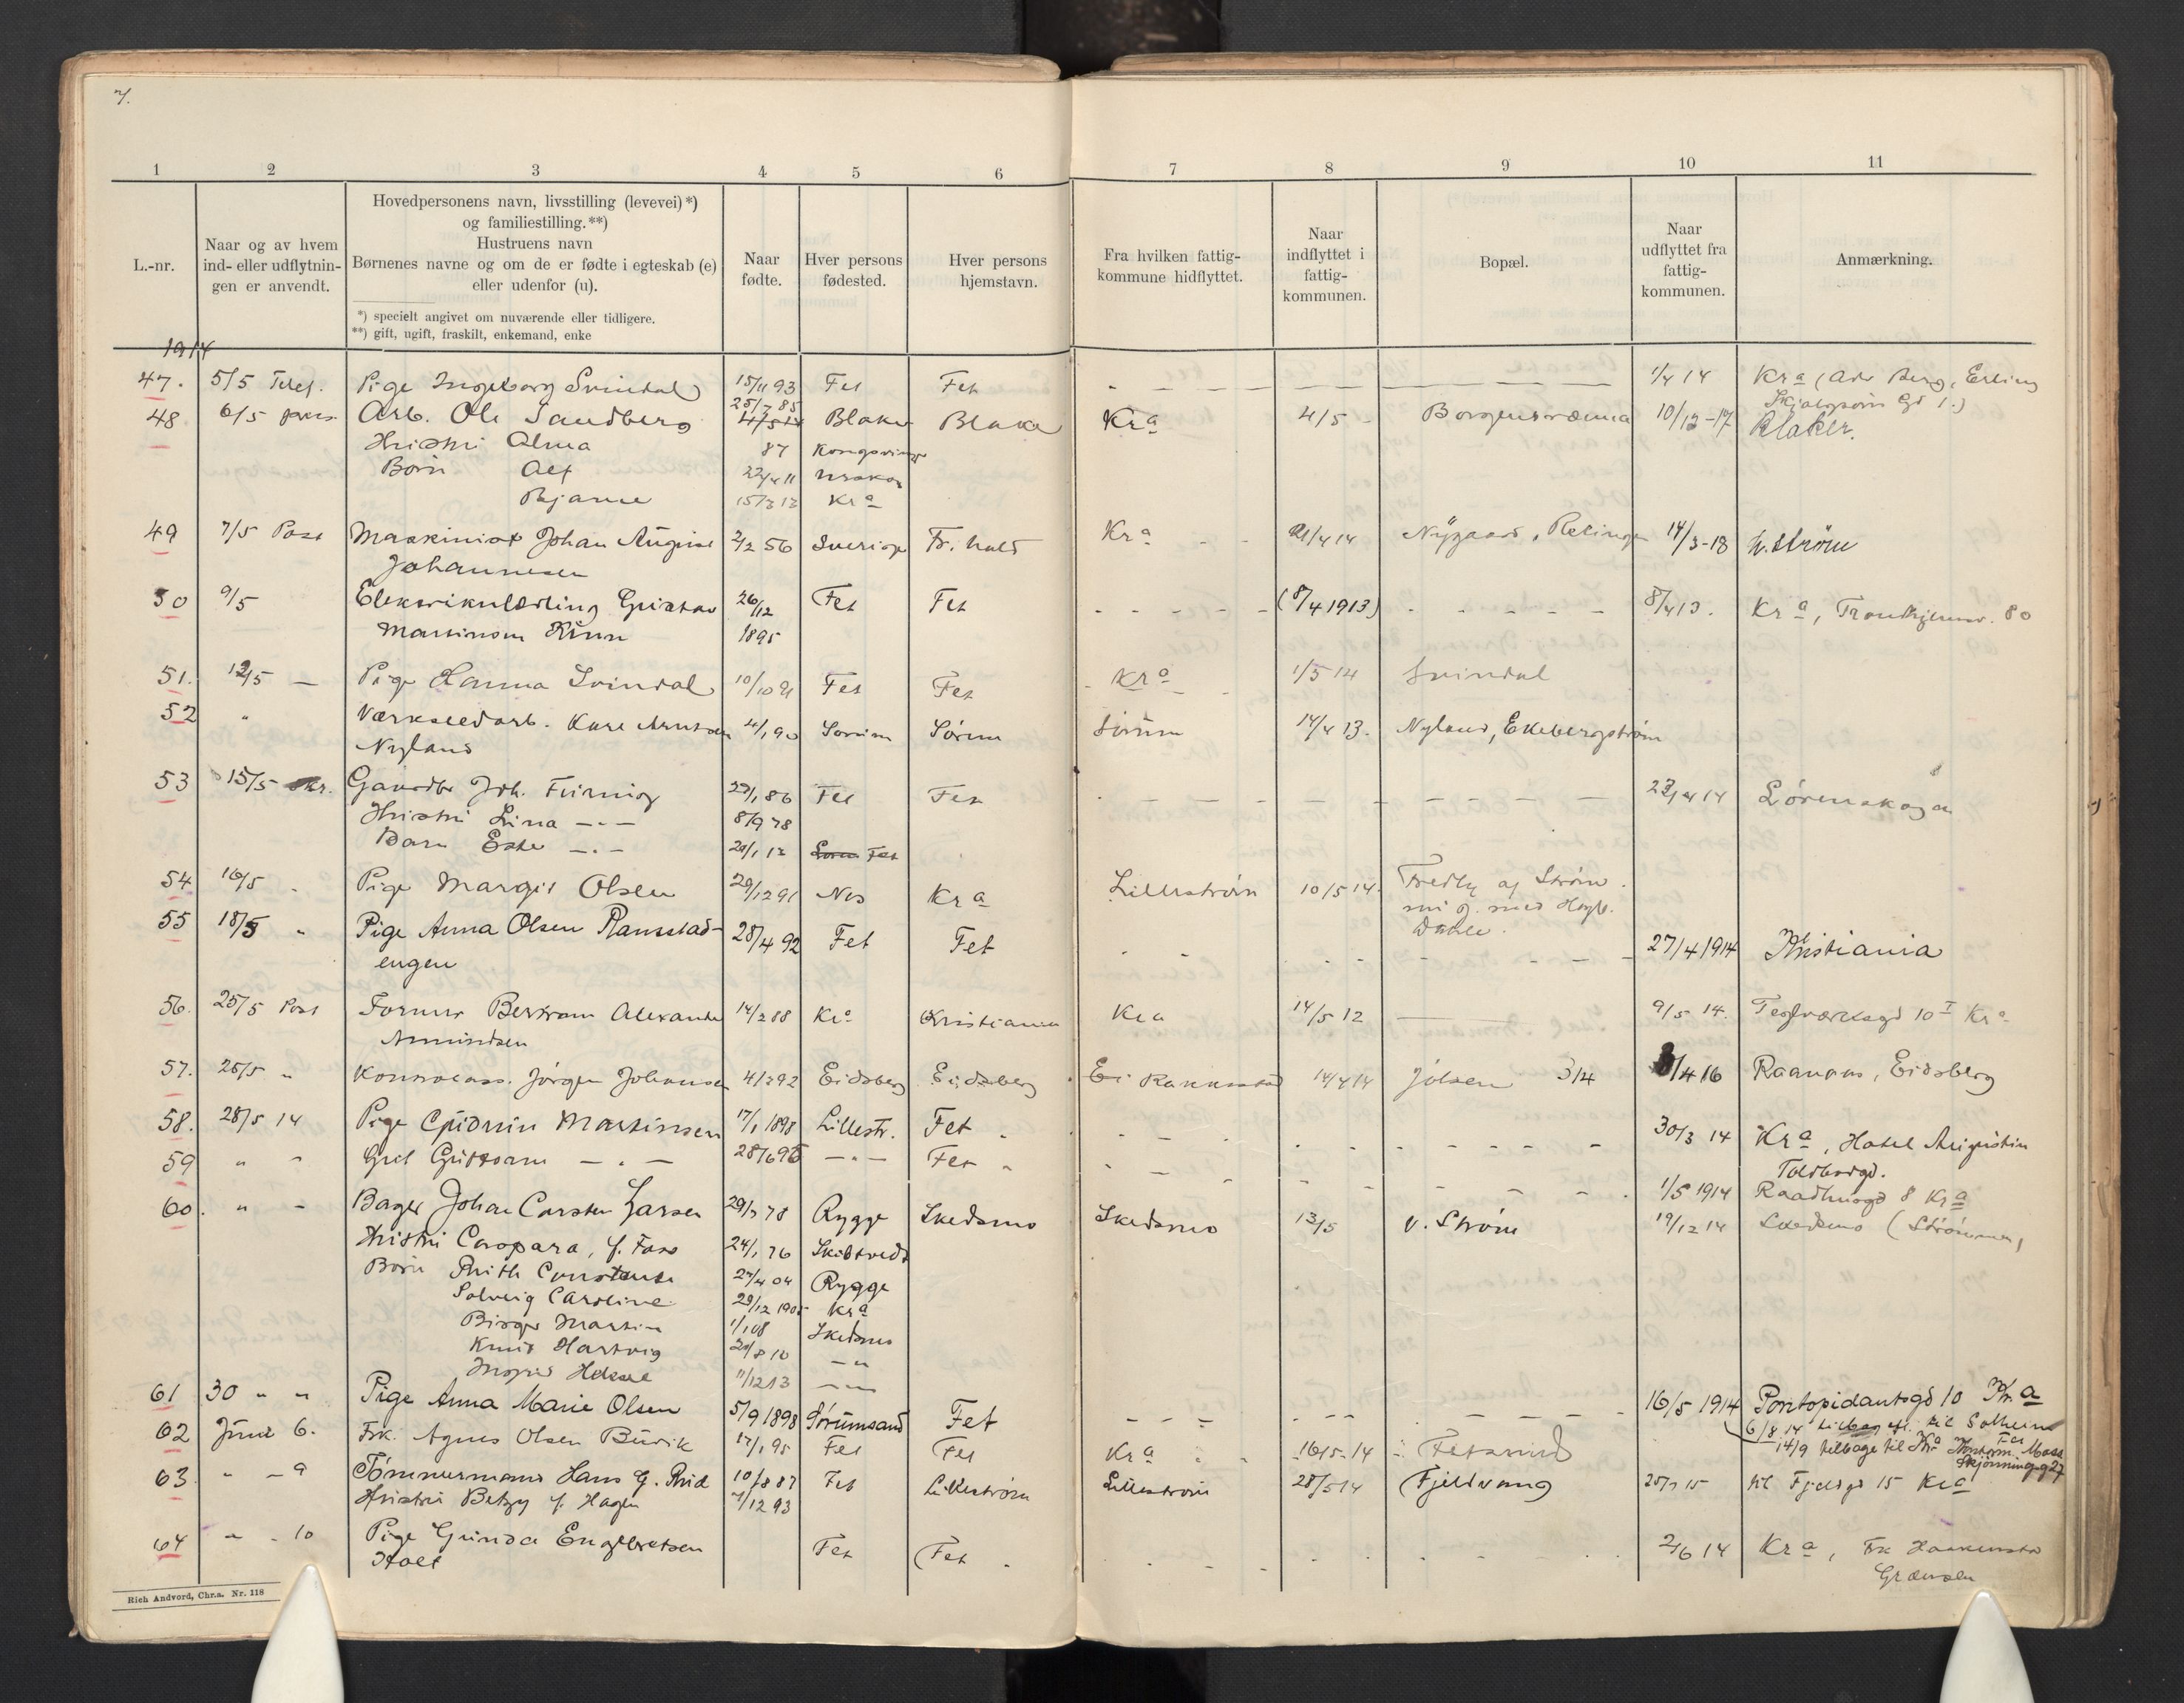 7.
1 2 3 4 5 6 7 8 9 10 11
L.-nr.
Naar og av hvem
ind- eller udflytnin-
gen er anvendt.
Hovedpersonens navn, livsstilling (levevei) *)
og familiestilling. **)
Hustruens navn
Børnenes navne og om de er fødte i egteskab (e)
eller udenfor (u).
*) specielt angivet om nuværende eller tidligere.
**) gift, ugift, fraskilt, enkemand, enke
Naar
fødte.
Hver persons
fødested.
Hver persons
hjemstavn.
Fra hvilken fattig-
kommune hidflyttet.
Naar
indflyttet i
fattig-
kommunen.
Bopæl.
Naar
udflyttet fra
fattig-
kommunen.
Anmærkning.
1914
47. 5/5 Telef. Pige Ingeborg Svindal 15/11 93 Fet Fet 1/4 14 Kra (Adr Berg, Erling
Skjalgsøns Gd 1.)
48 6/5 pers Arb. Ole Sandberg 25/7 85 Blaker Blaker Kra 4/5 10/12-17 Blaker.
Hustru Alma 87 Kongsvinger
Børn Alf 22/4 11 Urskog
Bjarne 15/3 13 Kra
49 7/5 Post Maskinist Johan August 2/2 56 Sverige Fr. hald Kra 21/4 14 Nygaard, Relingen 14/3-18 L.strøm
Johannesen
50 9/5 Elektrikulærling Gustav 26/12 Fet Fet (8/4 1913) 8/4 13. Kra, Trondhjemsv. 80
Martinson 1895
51. 12/5 — Pige Hanna Svindal 10/10 91 Fet Fet Kra 1/5 14 Svindal
52 " Værkstedarb. Kare Arntsen 4/1 90 Sørum Sørum Sørum 14/4 13. Nyland, Ekebergstrøm
Nyland
53 15/5 Gaardbr Joh. 29/1 86 Fet Fet 23/4 14 Lørenskogen
Hustru Lina — " — 8/9 78
Barn — " — 20/1 12 Fet
54 16/5 " Pige Margit Olsen 29/12 91 Nes Kra Lillestrøm 10/5 14. Fredly af Strøm
55 18/5 " Pige Anna Olsen Ramstad- 28/4 92 Fet Fet 27/4 1914 Kristiania
engen
56. 25/5 Post Former Bertram Alexander 14/2 88 Kra Kristiania Kra 14/5 12 9/5 14. Teglverksgd 10 I Kra
Amundsen
57. 25/5 " Kontrolass. Jørgen Johansen 4/2 92 Eidsberg Eidsberg 14/4 14 Jølsen 3/4 8/4 16 Raanaas, Eidsberg
58. 28/5 14 Pige Gudrun Martinsen 17/1 1898 Lillestr. Fet 30/3 14 Kra, Hotel Augustin
Toldbodgd.
59 " " — " — 28/6 96 — " — Fet 1/5 1914 Raadhusgd 8 Kra
60. " " Bager Johan Carsten Larsen 29/7 78 Rygge Skedsmo Skedsmo 13/5 v. Strøm 19/12 14 Skedsmo (Strømmen)
Hustru 24/1 76 Skibtvedt
Børn Ruth Constanse 27/4 04 Rygge
Solveig Caroline 29/12 1905 Kra
Birger Martin 1/1 08 Skedsmo
Knut Hartvig 20/8 10 — " —
Ingrid 11/12 13 — " —
61 30 " " Pige Anna Marie Olsen 5/9 1898 Sørumsand Fet 16/5 1914 Pontopidansgd 10 Kr.a
6/8 14 tilbage til Solheim
Fet
62 Juni 6. Frk. Agnes Olsen Burik 17/1 95 Fet Fet Kra 16/5-14 Fetsund
14/9 tilbage til Kra
63. " " 9 Tømmermand Hans G. Rud 10/8 87 Fet Lillestrøm Lillestrøm 28/5 14 Fjeldvang 25/7 15 til Fjeldgd 15 Kra
Hustru Betzy f. Hagen 7/12 93
64 " " 10 Pige Gunda Engebretsen Fet Fet 2/6 14 Kra,
Holt Grænsen
Rich Andvord, Chr.a. Nr. 118